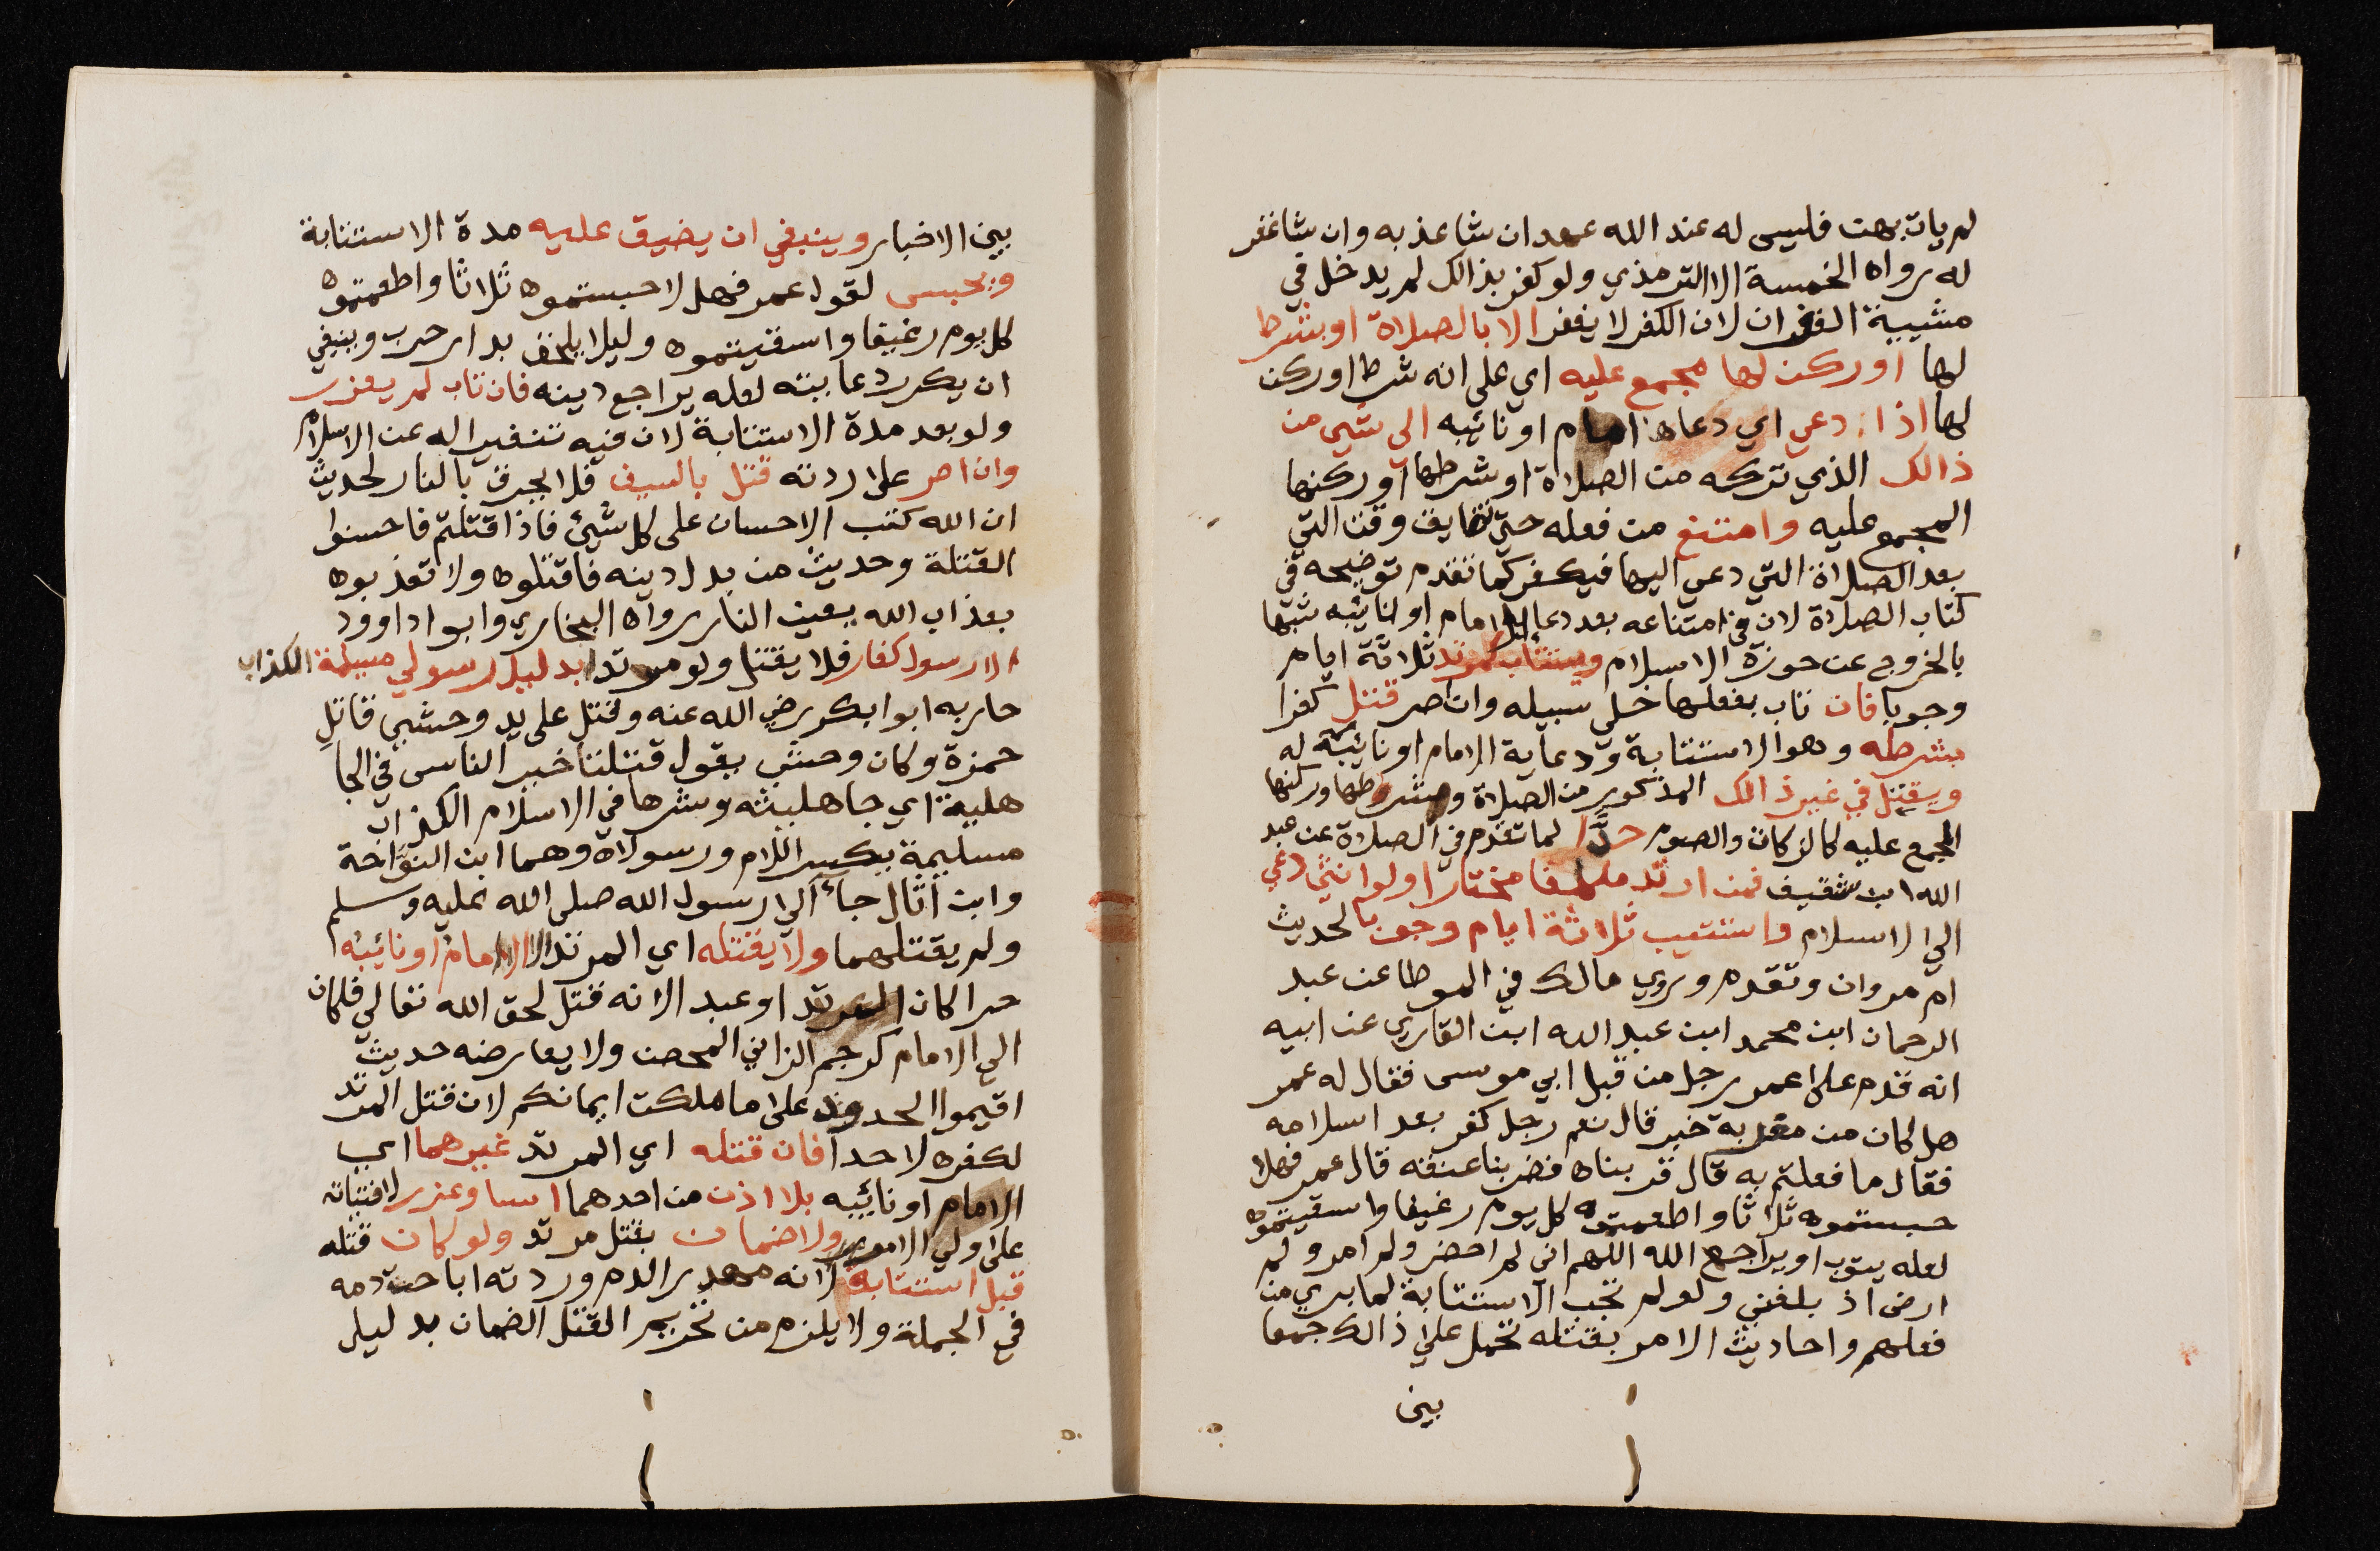 لم يات بهن فليس له عند الله عهد ان شا عذبه وان شا غفر
له رواه الخمسة الا الترمذي ولو كفر بذالك لم يدخل في
مشيية الغفران لان الكفر لا يغفر الا بالصلاة او بشرط
لها او ركن لها مجمع عليه اي على انه شرط او ركن
لها اذا دعي اي دعاه امام او نائبه الي شيي من
ذالك الذي تركه من الصلاة او شرطها او ركنها
المجمع عليه وامتنع من فعله حتي تضايق وقت التي
بعد الصلاة التي دعي اليها فيكفر كما تقدم توضيحه في
كتاب الصلاة لان في امتناعه بعد دعا الامام او نائبه شبها
بالخروج عن حوزة الاسلام ويستتاب كمرتد ثلاثة ايام
وجوبا فان تاب بفعلها خلي سبيله وان اصر قتل كفرا
بشرطه وهو الاستتابة ودعاية الامام او نائبه له
ويقتل في غير ذالك المذكور من الصلاة وشرطها وركنها
المجمع عليه كالزكاة والصوم حدًّا لما تقدم في الصلاة عن عبد
الله ابن شقيق فمن ارتد مكلفا مختارا ولو انثي دعي
الي الاسلام واستتيب ثلاثة ايام وجوبا لحديث
ام مروان وتقدم وروي مالك في الموطا عن عبد
الرحمان ابن محمد ابن عبد الله ابن القاري عن ابيه
انه قدم على عمر رجل من قبل ابي موسى فقال له عمر
هل كان من مغربة خبر قال نعم رجل كفر بعد اسلامه
فقال ما فعلتم به قال قربناه فضربنا عنقه قال عمر فهلا
حبستموه ثلاثا واطعمتوه كل يوم رغيفا واسقيتموه
لعله يتوب او يراجع الله اللهم اني لم احضر ولم امر ولم
ارض اذ بلغني ولو لم تجب الاستتابة لما بري من
فعلهم واحاديث الامر بقتله تحمل على ذالك جمعا
بين
بين الاخبار وينبغي ان يضيق عليه مدة الاستتابة
ويحبس لقول عمر فهلا حبستموه ثلاثا واطعمتموه
كل يوم رغيفا واسقيتموه وليلا يلحق بدار حرب وينبغي
ان يكرر دعايته لعله يراجع دينه فان تاب لم يعزر
ولو بعد مدة الاستتابة لان فيه تنفيرا له عن الاسلام
وان اصر على ردته قتل بالسيف فلا يحرق بالنار لحديث
ان الله كتب الاحسان على كل شيئ فاذا قتلتم فاحسنوا
القتلة وحديث من بدل دينه فاقتلوه ولا تعذبوه
بعذاب الله يعين النار رواه البخاري وابو اداوود
الا رسول كفار فلا يقتل ولو مرتدا بدليل رسولي مسيلمة الكذاب
حاربه ابوا بكر رضي الله عنه وقتل على يد وحشي قاتل
حمزة وكان وحشي يقول قتلنا خير الناس في الجا
هلية اي جاهليته وشرها في الاسلام الكذاب
مسليمة بكسر اللام ورسولاه وهما ابن النوَّاحة
وابن اثال جاٱ الى رسول الله صلى الله عليه وسلم
ولم يقتلهما ولا يقتله اي المرتد الا الامام او نائبه
حرا كان المرتد او عبد الانه قتل لحق الله تعالي فكان
الي الامام كرجم الزاني المحصن ولا يعارضه حديث
اقيموا الحدود على ما ملكت ايمانكم لان قتل المرتد
لكفره لا حدا فان قتله اي المرتد غيرهما اي
الامام او نائبه بلا اذن من احدهما اسا وعزر لافتياته
على ولي الامور ولا ضمان بقتل مرتد ولو كان قتله
قبل استتابة لانه مهدر الدم وردته اباحت دمه
في الجملة ولا يلزم من تحريم القتل الضمان بدليل